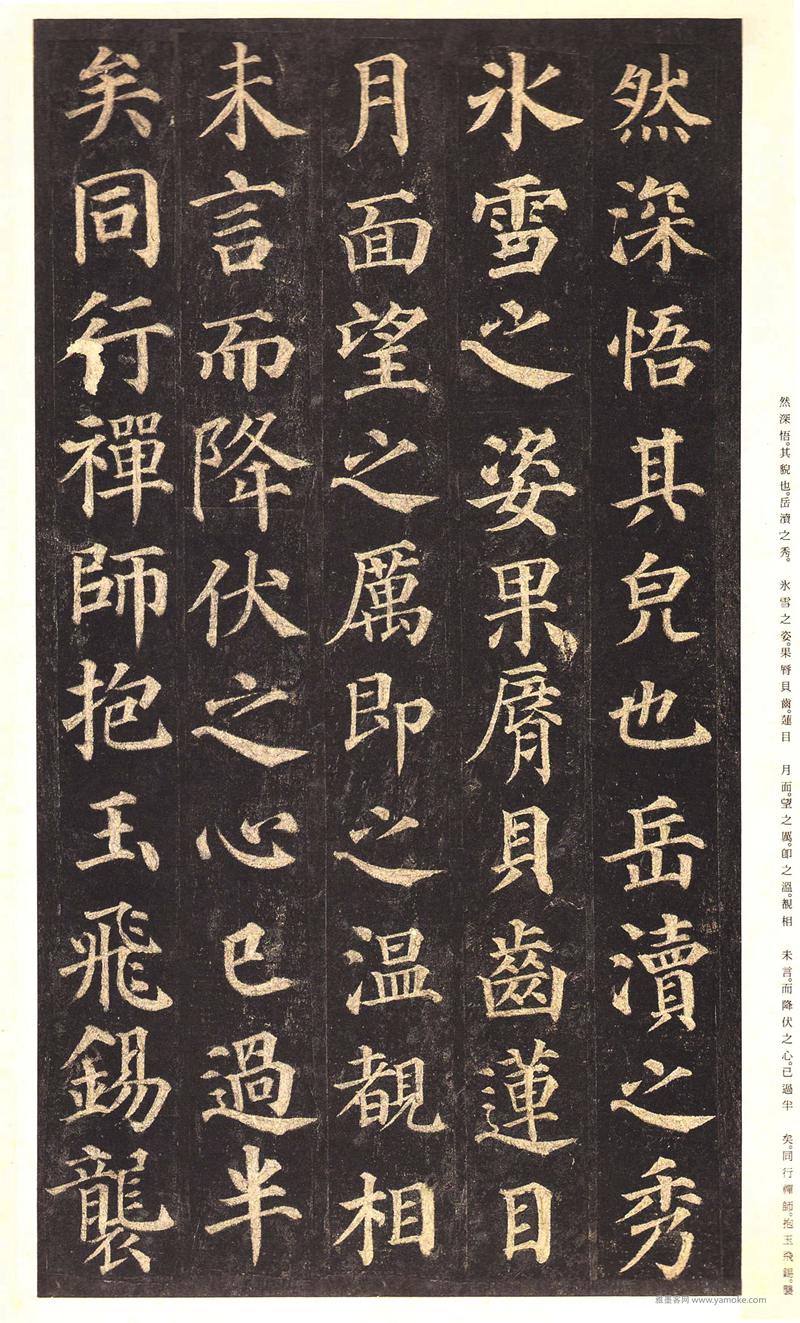 然深悟其皃也岳瀆之秀
氷雪之姿果脣貝齒蓮目
月面望之厲即之温覩相
未言而降伏之心已過半
矣同行禪師抱玉飛錫襲
然深悟。其貌也。岳瀆之秀。 氷雪之姿。果脣貝齒。蓮目 月面。望之厲。卽之溫。覩相 未言。而降伏之心。已過半 矣。同行禪師。抱玉飛錫。襲
雅墨客网 www.yamoke.com